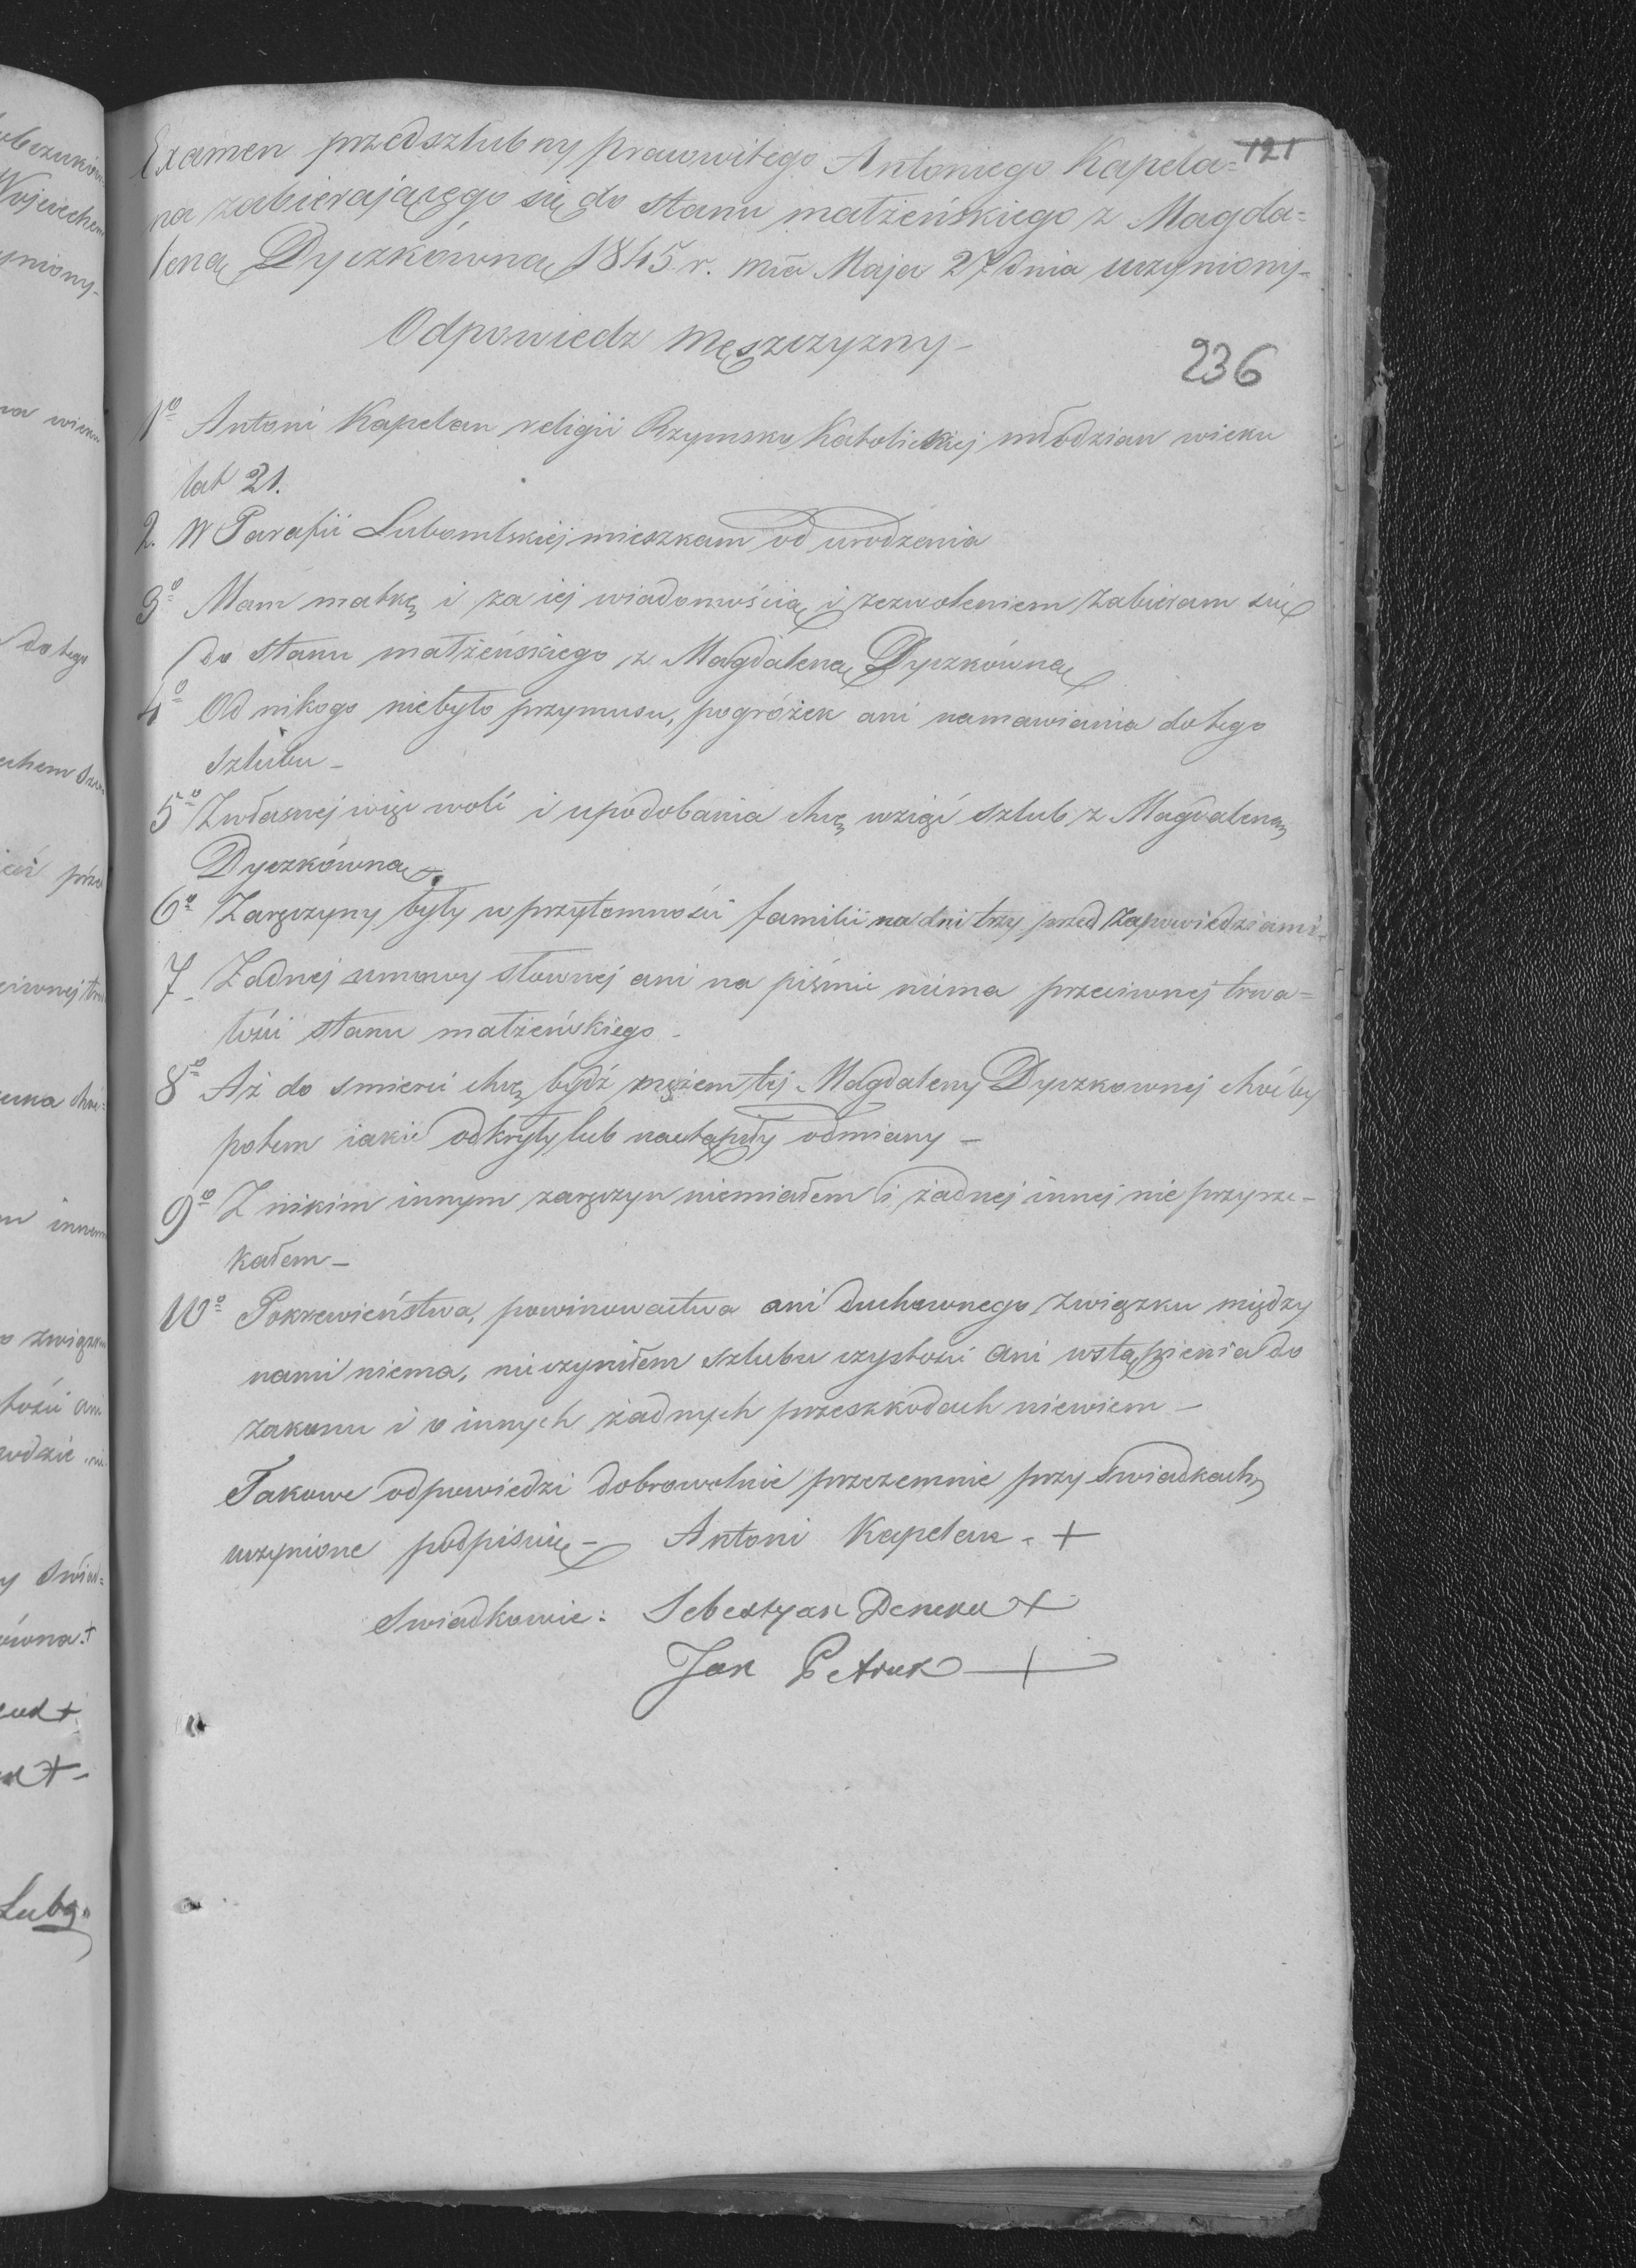 121
Examen przedszlubny prawowitego Antoniego Kapela=
na zabierającego się do stanu małżeńskiego z Magda=
leną Dyczkówną 1845 r. mca Maja 27 dnia uczyniony-
Odpowiedz męszczyzny-
236
1o Antoni Kapelan religii Rzymsko Katolickiej młodzian wieku
lat 21.
2. W Parafii Lubomlskiej mieszkam od urodzenia
3o Mam matkę i za iej wiadomością i zezwoleniem zabieram się
do stanu małżeńskiego z Magdaleną Dyczkówną
4o Od nikogo niebyło przymusu, pogróżek ani namawiania do tego
szlubu-
5o Zwłasnej więc woli i upodobania chcę wziąć szlub z Magdaleną
Dyczkówną.
6o Zaręczyny były w przytomności familii na dni trzy przed zapowiedziami-
7 Żadnej umowy słownej ani na piśmie nima przeciwnej trwa=
łości stanu małżeńskiego-
8o Aż do smierci chcę bydź mężem tej Magdaleny Dyczkownej choćby
potem iakie odkryły lub nastąpiły odmiany-
9o Z nikim innym zaręczyn niemiałem i żadnej innej nie przyrze-
kałem-
10o Pokrewieństwa, powinowactwa ani duchownego związku między
nami niema, nie czyniłem szlubu czystości ani wstąpienia do
zakonu i o innych żadnych przeszkodach niewiem-
Takowe odpowiedzi dobrowolnie przezemnie przy swiadkach
uczynione podpisuię- Antoni Kapelan - +
Swiadkowie: Sebestyan Deneka +
Jan Petruk +